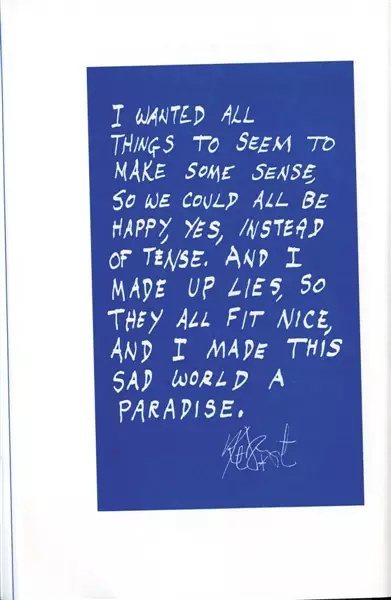 I WANTED ALL
THINGS TO SEEM TO
MAKE SOME SENSE,
SO WE COULD ALL BE
HAPPY, YES, INSTEAD
OF TENSE. AND I
MADE UP LIES, SO
THEY ALL FIT NICE,
AND I MADE THIS
SAD WORLD A
PARADISE.